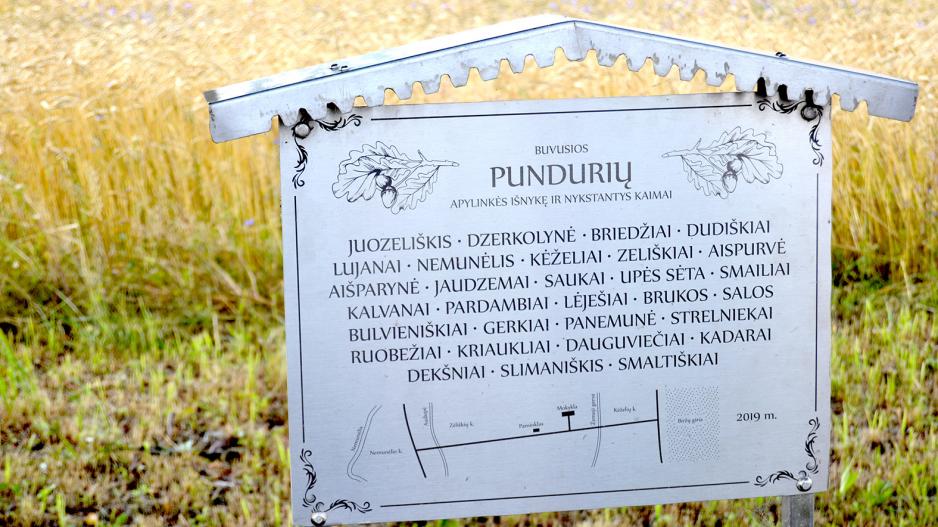 BUVUSIOS
PUNDURIŲ
APYLINKĖS IŠNYKĘ IR NYKSTANTYS KAIMAI
JUOZELIŠKIS · DZERKOLYNĖ · BRIEDŽIAI · DUDIŠKIAI
LUJANAI · NEMUNĖLIS · KĖŽELIAI · ZELIŠKIAI · AISPURVĖ
AIŠPARYNĖ · JAUDZEMAI · SAUKAI · UPĖS SĖTA · SMAILIAI
KALVANAI · PARDAMBIAI · LĖJEŠIAI · BRUKOS · SALOS
BULVIENIŠKIAI · GERKIAI · PANEMUNĖ · STRELNIEKAI
RUOBEŽIAI · KRIAUKLIAI · DAUGUVIEČIAI · KADARAI
DEKŠNIAI · SLIMANIŠKIS · SMALTIŠKIAI
Mokykla
Kėželių k.
Paminklas
Biržų giria
2019 m.
Nemunėlio k.